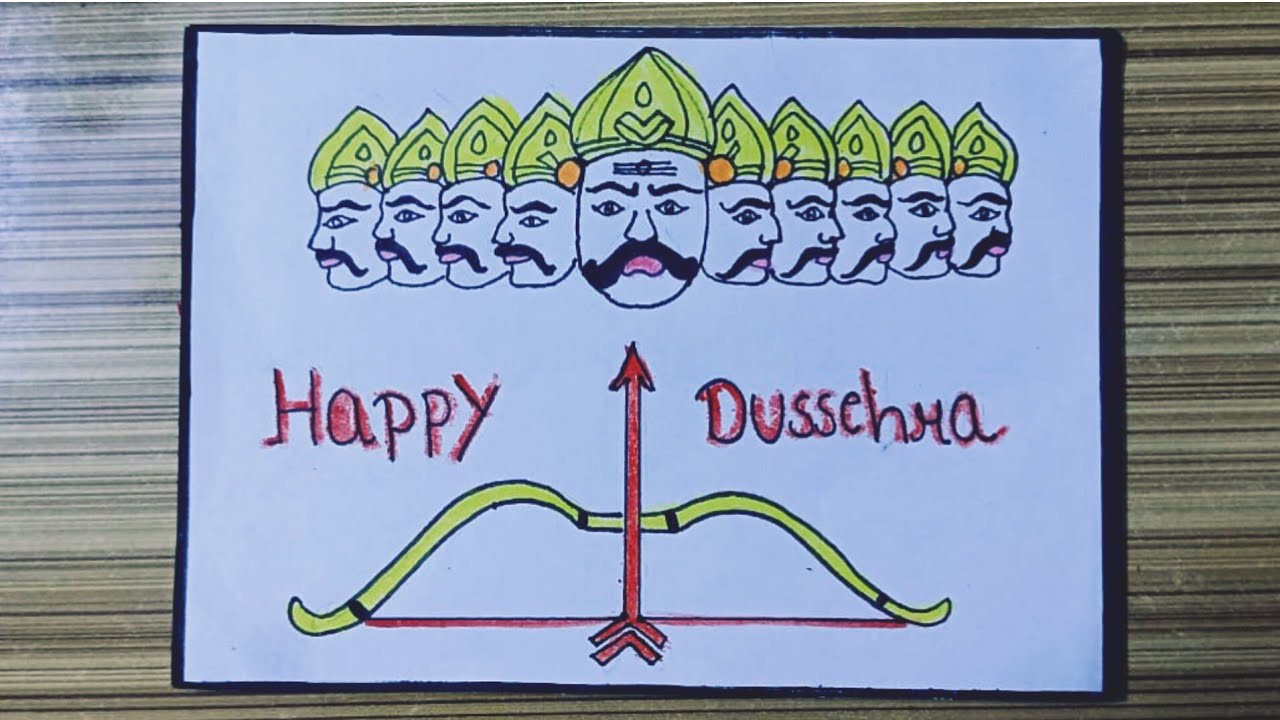 Happy Dussehra